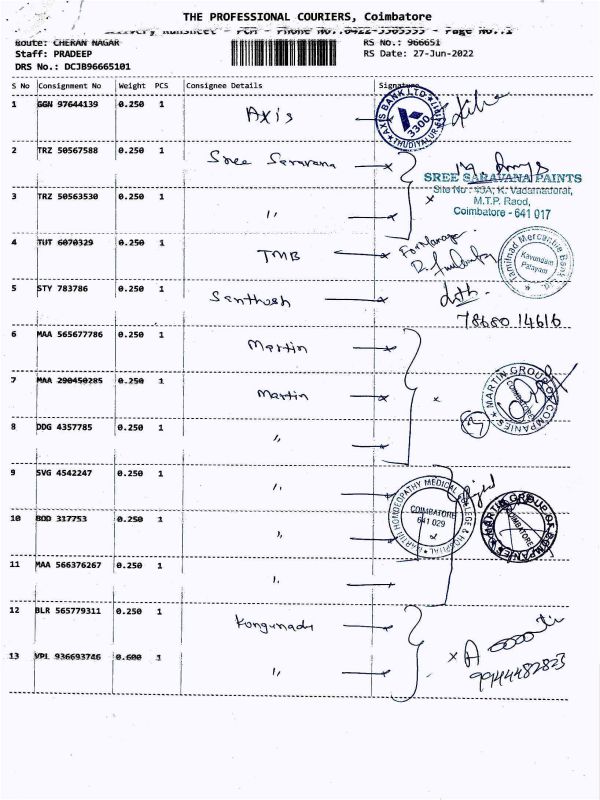 THE PROFESSIONAL COURIERS, Coimbatore
Delivery Runsheet - PCM - Phone No.:0422-3505555 - Page No.:1
Route: CHERAN NAGAR
RS No.: 966651
Staff: PRADEEP
RS Date: 27-Jun-2022
DRS No.: DCJB96665101
S No Consignment No Weight PCS Consignee Details Signature
1 GGN 97644139 0.250 1 Axis
AXIS BANK LTD THUDIYALUR 3300
2 TRZ 50567588 0.250 1 Sree Saravana
SREE SARAVANA PAINTS
Site No : 49A, K. Vadamadurai,
M.T.P. Raod,
Coimbatore - 641 017
3 TRZ 50563530 0.250 1 "
4 TUT 6070329 0.250 1 TMB
For Manager
Tamilnad Mercantile Bank Ltd
Kavundam
Palayam
5 STY 783786 0.250 1 Santhosh
78680 14616
6 MAA 565677786 0.250 1 Martin
7 MAA 290450285 0.250 1 Martin
MARTIN GROUP OF COMPANIES
COIMBATORE
8 DDG 4357785 0.250 1 "
9 SVG 4542247 0.250 1 "
MARTIN HOMOEOPATHY MEDICAL COLLEGE & HOSPITAL
COIMBATORE
641 029
MARTIN GROUP OF COMPANIES
COIMBATORE
10 BDD 317753 0.250 1 "
11 MAA 566376267 0.250 1 "
12 BLR 565779311 0.250 1 Kongunadu
13 VPL 936693746 0.600 1 "
9944482823